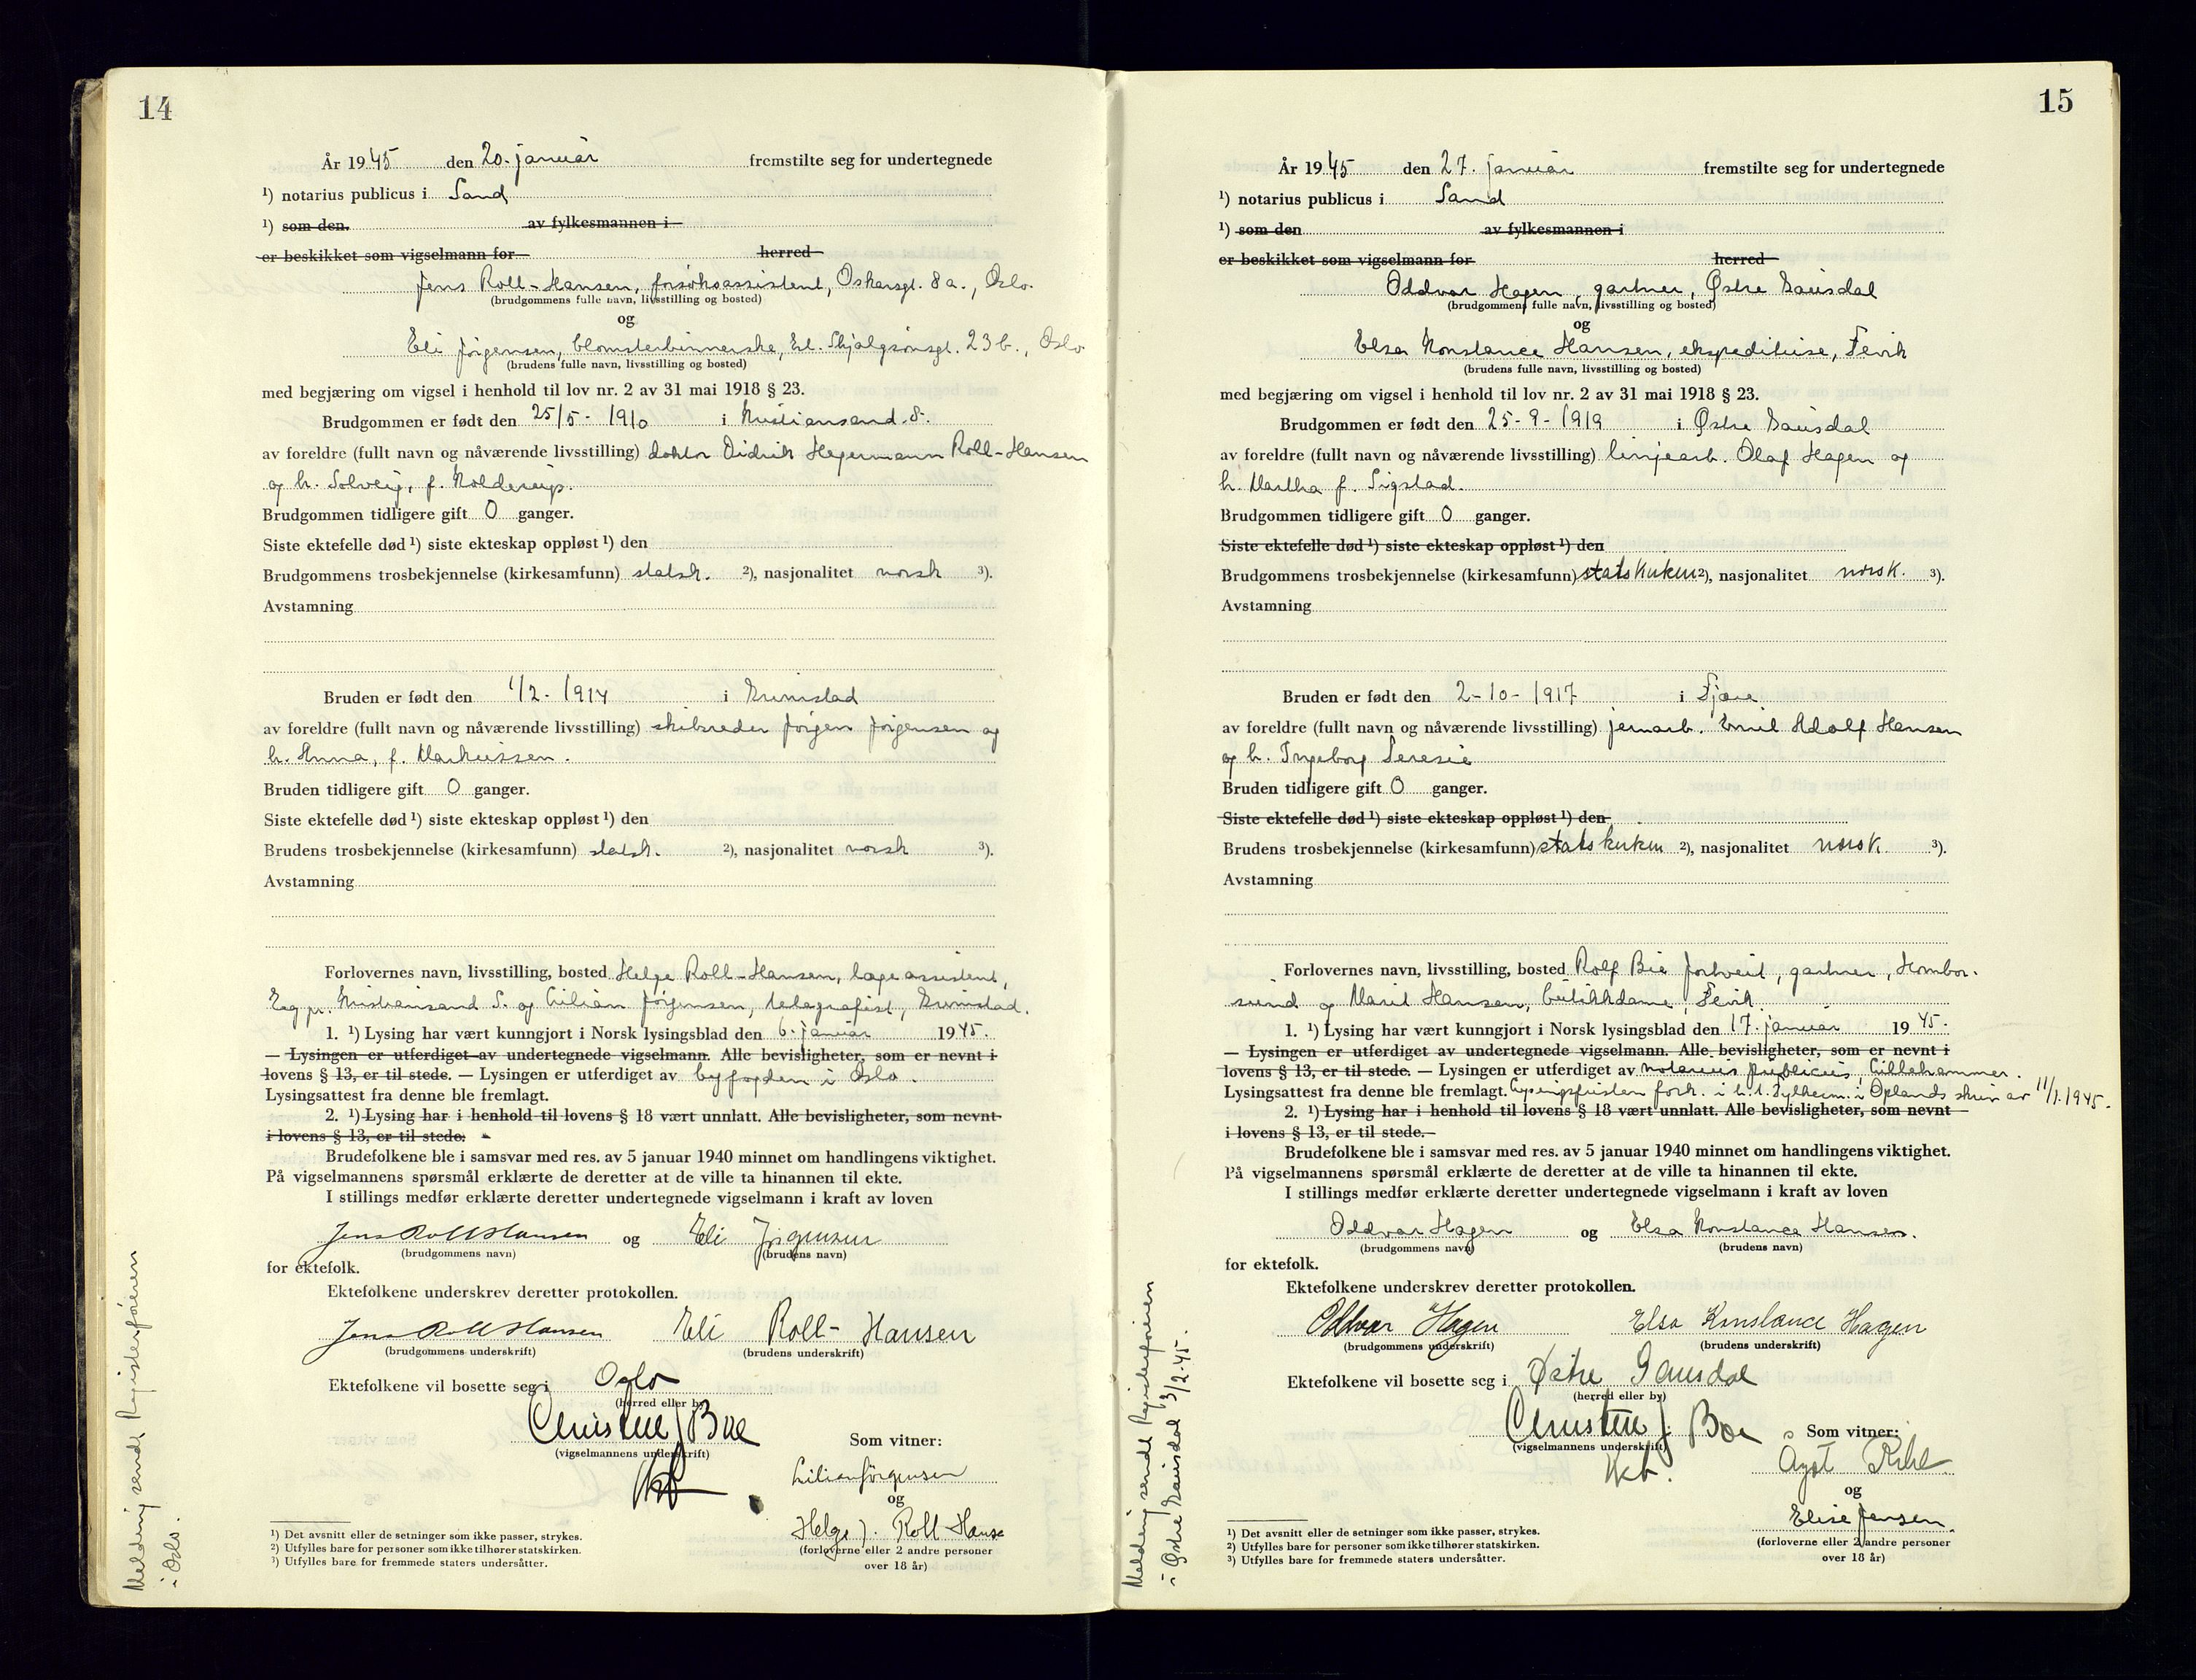 14
År 1945 den 20. januar fremstilte seg for undertegnede
¹) notarius publicus i Sand
¹) som den av fylkesmannen i
er beskikket som vigselmann for herred
Jens Roll-Hansen, forsøksassistent, Oskarsgt. 8 a., Oslo.
(brudgommens fulle navn, livsstilling og bosted)
og
Eli Jørgensen, blomsterbinnerske, Erl. Skjalgsønsgt. 23 b., Oslo
(brudens fulle navn, livsstilling og bosted)
med begjæring om vigsel i henhold til lov nr. 2 av 31 mai 1918 § 23.
Brudgommen er født den 25/5 - 1910 i Kristiansand S.
av foreldre (fullt navn og nåværende livsstilling) doktor Didrik Hegermann Roll-Hansen
og h. Solveig, f. Kolderup.
Brudgommen tidligere gift 0 ganger.
Siste ektefelle død ¹) siste ekteskap oppløst ¹) den
Brudgommens trosbekjennelse (kirkesamfunn) statsk. ²), nasjonalitet norsk ³).
Avstamning
Bruden er født den 1/2 - 1914 i Grimstad
av foreldre (fullt navn og nåværende livsstilling) skibsreder Jørgen Jørgensen og
h. Anna, f. Markussen.
Bruden tidligere gift 0 ganger.
Siste ektefelle død ¹) siste ekteskap oppløst ¹) den
Brudens trosbekjennelse (kirkesamfunn) statsk. ²), nasjonalitet norsk ³).
Avstamning
Forlovernes navn, livsstilling, bosted Helge Roll-Hansen, lageassistent,
Eeg pr. Kristiansand S. og Lilian Jørgensen, telegrafist, Grimstad.
1. ¹) Lysing har vært kunngjort i Norsk lysingsblad den 6. januar 1945.
— Lysingen er utferdiget av undertegnede vigselmann. Alle bevisligheter, som er nevnt i
lovens § 13, er til stede. — Lysingen er utferdiget av byfogden i Oslo.
Lysingsattest fra denne ble fremlagt.
2. ¹) Lysing har i henhold til lovens § 18 vært unnlatt. Alle bevisligheter, som nevnt
i lovens § 13, er til stede.
Brudefolkene ble i samsvar med res. av 5 januar 1940 minnet om handlingens viktighet.
På vigselmannens spørsmål erklærte de deretter at de ville ta hinannen til ekte.
I stillings medfør erklærte deretter undertegnede vigselmann i kraft av loven
Jens Roll Hansen og Eli Jørgensen
(brudgommens navn) (brudens navn)
for ektefolk.
Ektefolkene underskrev deretter protokollen.
Jens Roll Hansen Eli Roll-Hansen
(brudgommens underskrift) (brudens underskrift)
Ektefolkene vil bosette seg i Oslo
(herred eller by)
Christen J Boe
(vigselmannens underskrift)
Som vitner:
Lilian Jörgensen
og
Helge J. Roll-Hanse
(forloverne eller 2 andre personer
over 18 år)
¹) Det avsnitt eller de setninger som ikke passer, strykes.
²) Utfylles bare for personer som ikke tilhører statskirken.
³) Utfylles bare for fremmede staters undersåtter.
Melding sendt Registerføreren
i Oslo.
15
År 1945 den 27. januar fremstilte seg for undertegnede
¹) notarius publicus i Sand
¹) som den av fylkesmannen i
er beskikket som vigselmann for herred
Oddvar Hagen, gartner, Østre Gausdal
(brudgommens fulle navn, livsstilling og bosted)
og
Elsa Konstance Hansen, ekspeditrise, Fevik
(brudens fulle navn, livsstilling og bosted)
med begjæring om vigsel i henhold til lov nr. 2 av 31 mai 1918 § 23.
Brudgommen er født den 25-9-1919 i Østre Gausdal
av foreldre (fullt navn og nåværende livsstilling) linjearb. Olaf Hagen og
h. Martha f. Sigstad.
Brudgommen tidligere gift 0 ganger.
Siste ektefelle død ¹) siste ekteskap oppløst ¹) den
Brudgommens trosbekjennelse (kirkesamfunn) statskirken ²), nasjonalitet norsk. ³).
Avstamning
Bruden er født den 2-10-1917 i Fjære
av foreldre (fullt navn og nåværende livsstilling) jernarb. Emil Adolf Hansen
og h. Ingeborg Teresie
Bruden tidligere gift 0 ganger.
Siste ektefelle død ¹) siste ekteskap oppløst ¹) den
Brudens trosbekjennelse (kirkesamfunn) statskirken ²), nasjonalitet norsk. ³).
Avstamning
Forlovernes navn, livsstilling, bosted Rolf Bie Jortveit, gartner, Hombor-
sund og Marit Hansen, butikkdame, Fevik.
1. ¹) Lysing har vært kunngjort i Norsk lysingsblad den 17. januar 1945.
— Lysingen er utferdiget av undertegnede vigselmann. Alle bevisligheter, som er nevnt i
lovens § 13, er til stede. — Lysingen er utferdiget av notarius publicus, Lillehammer.
Lysingsattest fra denne ble fremlagt. Lysingsfristen fork. i h. t. Fylkesm. i Oplands skriv av 11/1.1945.
2. ¹) Lysing har i henhold til lovens § 18 vært unnlatt. Alle bevisligheter, som nevnt
i lovens § 13, er til stede.
Brudefolkene ble i samsvar med res. av 5 januar 1940 minnet om handlingens viktighet.
På vigselmannens spørsmål erklærte de deretter at de ville ta hinannen til ekte.
I stillings medfør erklærte deretter undertegnede vigselmann i kraft av loven
Oddvar Hagen og Elsa Konstance Hansen.
(brudgommens navn) (brudens navn)
for ektefolk.
Ektefolkene underskrev deretter protokollen.
Oddvar Hagen Elsa Konstance Hagen
(brudgommens underskrift) (brudens underskrift)
Ektefolkene vil bosette seg i Østre Gausdal
(herred eller by)
Christen J. Boe
(vigselmannens underskrift)
Som vitner:
Agot
og
Elise Jensen.
(forloverne eller 2 andre personer
over 18 år)
¹) Det avsnitt eller de setninger som ikke passer, strykes.
²) Utfylles bare for personer som ikke tilhører statskirken.
³) Utfylles bare for fremmede staters undersåtter.
Melding sendt Registerføreren
i Østre Gausdal 3/2-45.